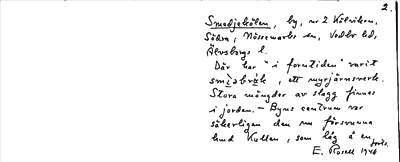 2.
Smedjekölen, by, nr 2 Kölviken,
Södra, Nössemarks sn, Vedbo hd,
Älvsborgs l.
Där har "i forntiden" varit
smidesbruk, ett myrjärnsverk.
Stora mängder av slagg finnes
i jorden. — Byns centrum var
säkerligen den nu försvunna
lund Kullen, som låg å en
E. Rosell 1946